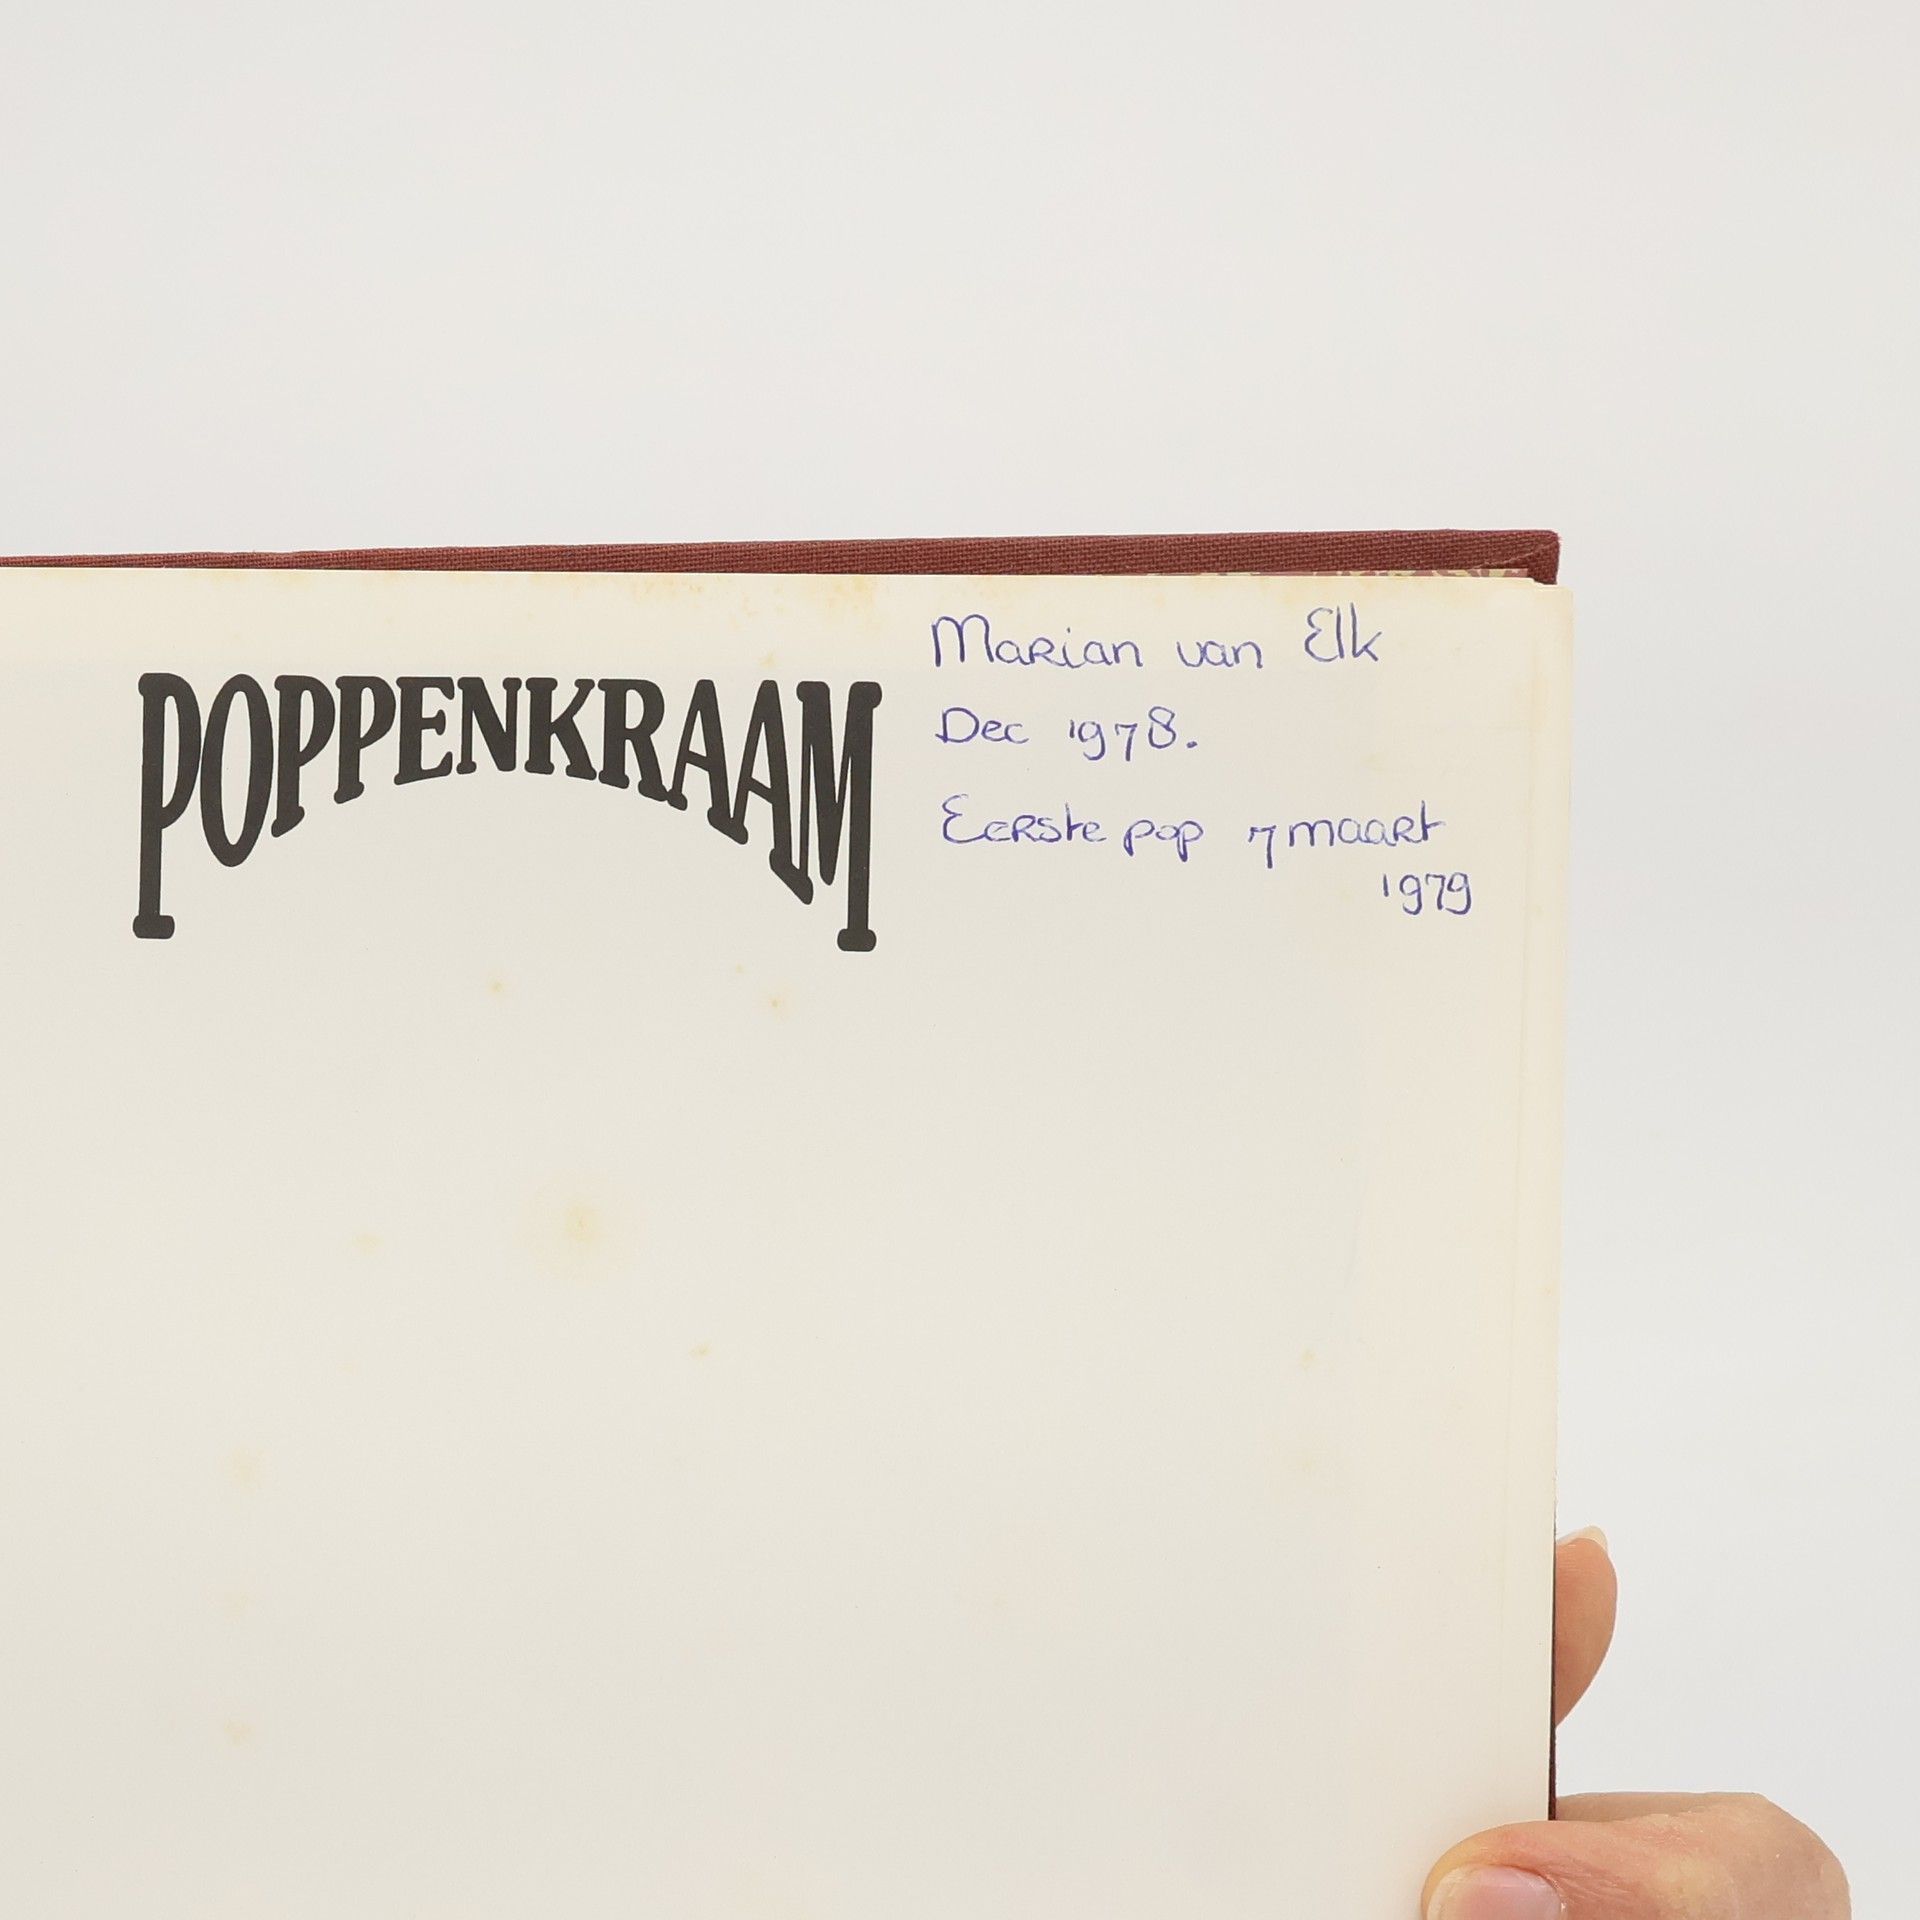 POPPENKRAAM
Marian van Elk
Dec 1978.
Eerste pop 7 maart
1979